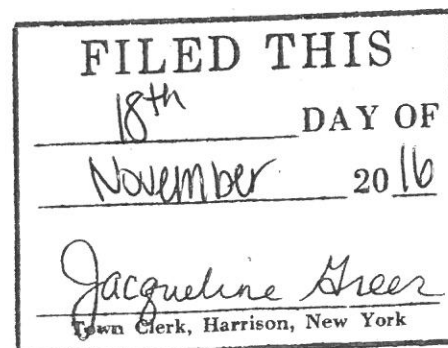 FILED THIS
18th DAY OF
November 2016
Jacqueline Greer
Town Clerk, Harrison, New York